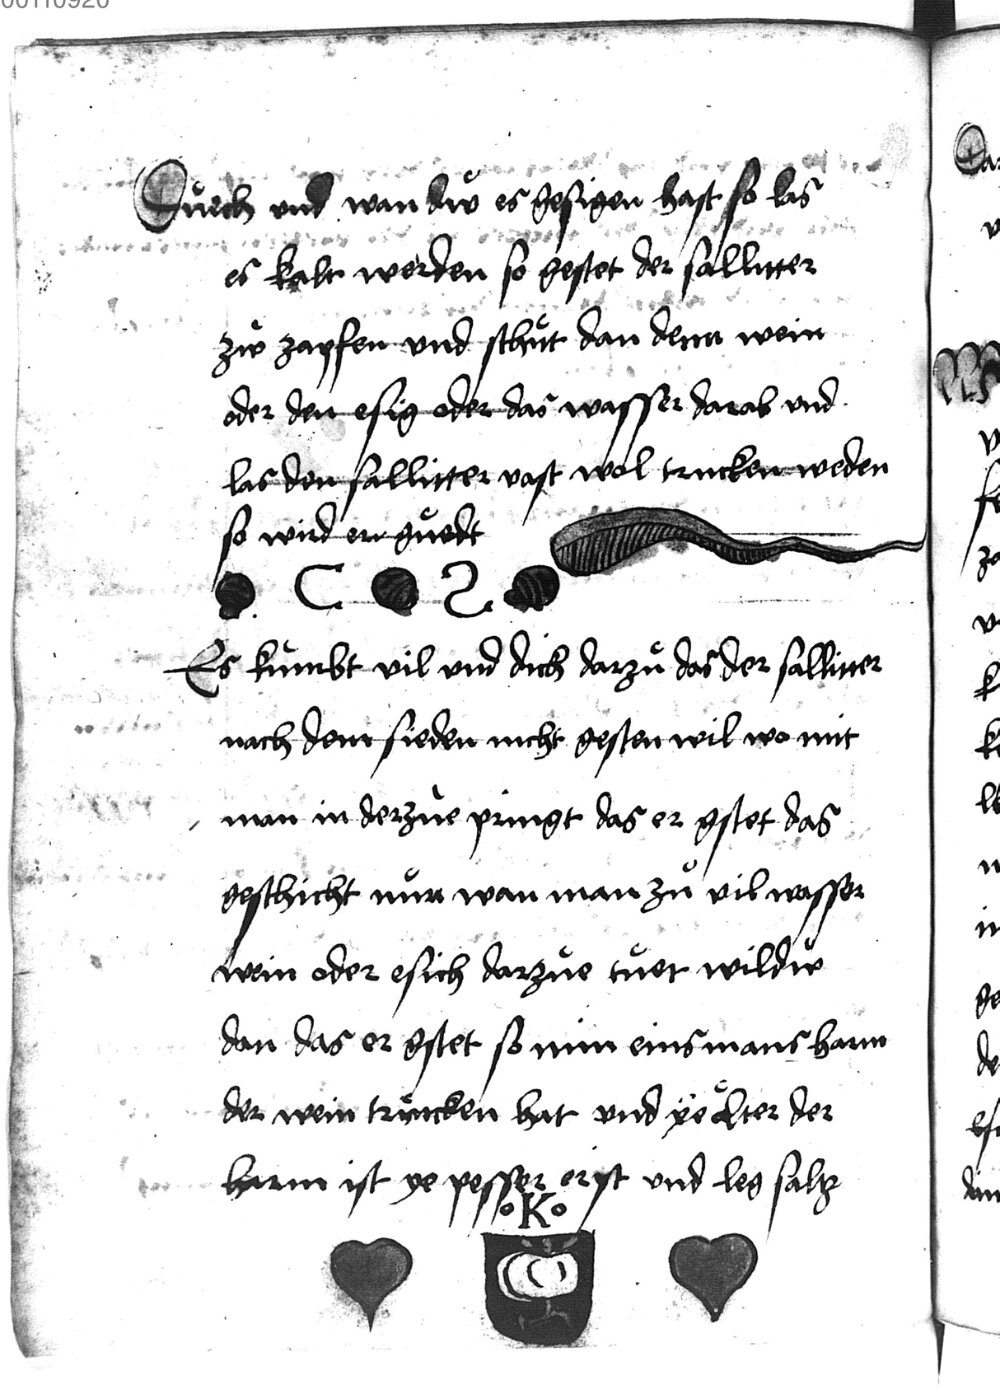 00110920
Duech vnd wan dw̆ es gesigen hast so las
es kalt werden so gestet der sallitter
zw̆ zapfen vnd schŭt dan denn wein
oder den esig oder das wasser darab vnd
las den sallitter vast wol trucken weden
so wird er gŭedt
C 2
Es kŭmbt vil vnd dick darzŭ das der sallitter
nach dem sieden nicht gesten wil wo mit
man in derzŭe pringt das er gstet das
geschicht nŭn wan man zŭ vil wasser
wein oder esich darzŭe tŭet wildw̆
dan das er gstet so nim eins mans harm
der wein trŭncken hat vnd ÿe ölter der
harm ist ye pesser er ist vnd leg saltz
K